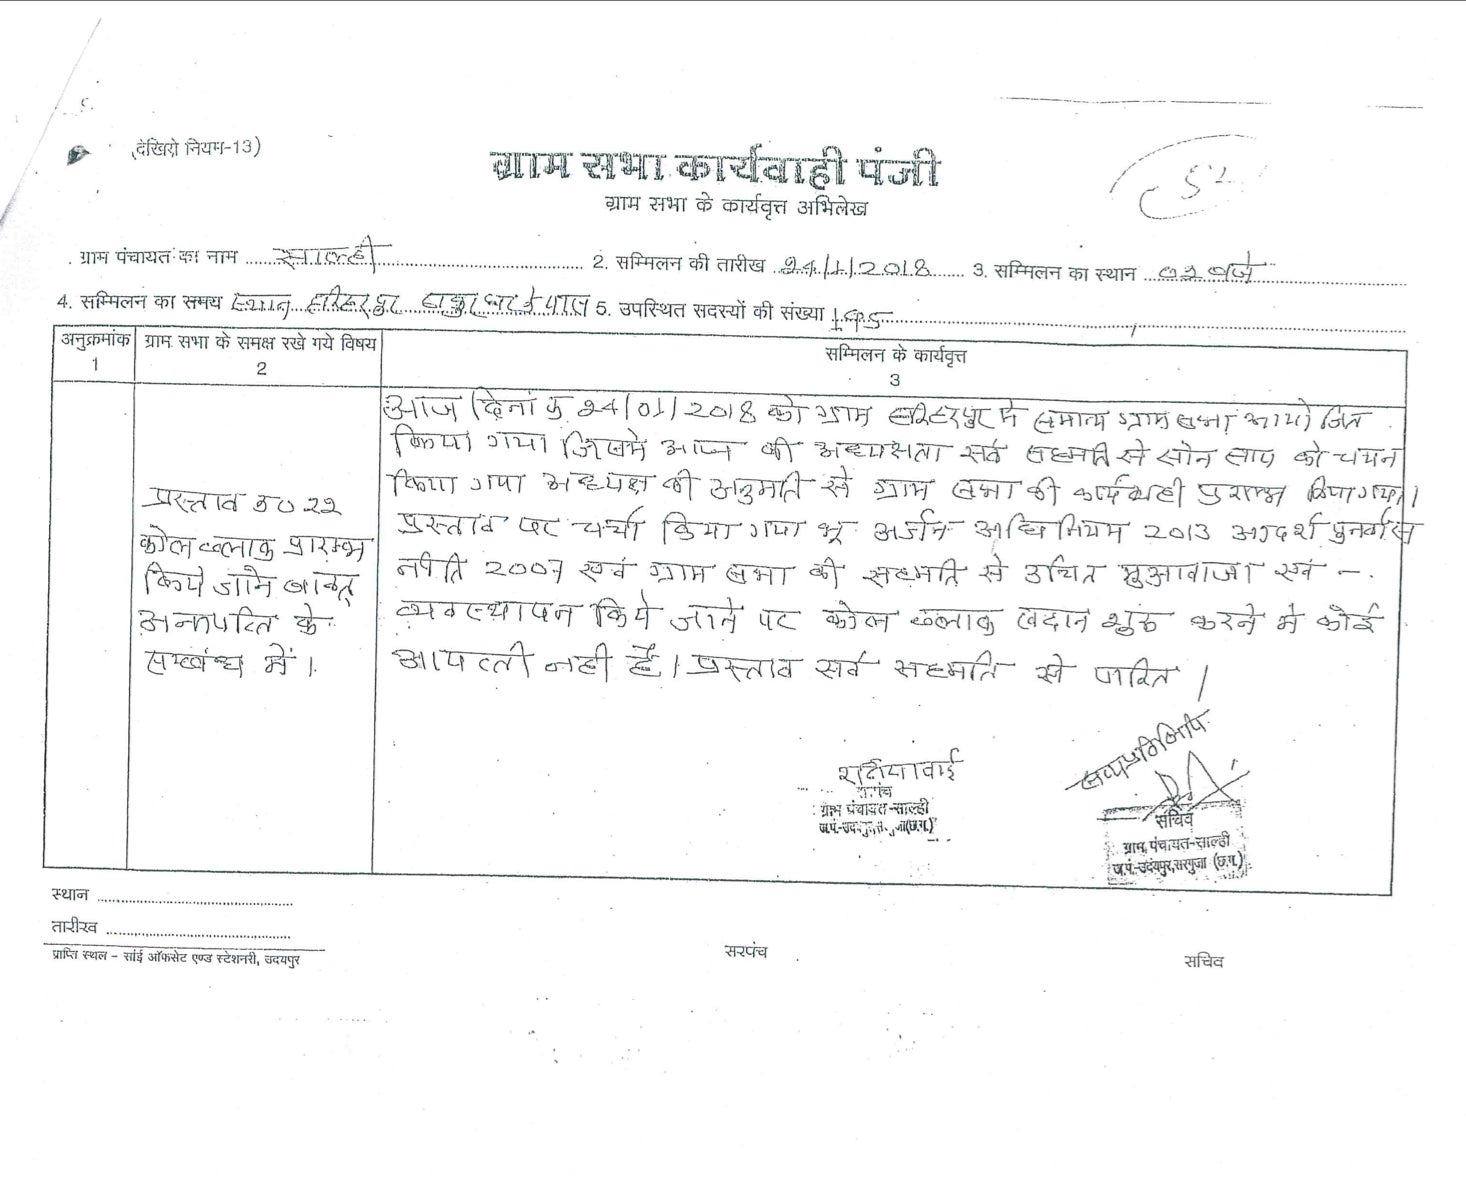 (देखिये नियम-13)
ग्राम सभा कार्यवाही पंजी
52
ग्राम सभा के कार्यवृत्त अभिलेख
. ग्राम पंचायत का नाम साल्ही 2. सम्मिलन की तारीख 24/1/2018 3. सम्मिलन का स्थान 02 बजे
4. सम्मिलन का समय स्थान हरिहरपुर ठाकुर घर के पास 5. उपस्थित सदस्यों की संख्या 195
अनुक्रमांक ग्राम सभा के समक्ष रखे गये विषय सम्मिलन के कार्यवृत्त
1 2 3
प्रस्ताव क्र0 22
कोल ब्लाक प्रारम्भ
किये जाने बाबत्
अनापत्ति के
सम्बंध में।
आज दिनांक 24/01/2018 को ग्राम हरिहरपुर में समान्य ग्राम सभा आयोजित
किया गया जिसमे आज की अध्यक्षता सर्व सहमति से सोन साय को चयन
किया गया अध्यक्ष की अनुमति से ग्राम सभा की कार्यवाही प्रारम्भ किया गया।
प्रस्ताव पर चर्चा किया गया भू अर्जन अधिनियम 2013 आदर्श पुनर्वास
नीति 2007 एवं ग्राम सभा की सहमति से उचित मुआवाजा एवं -.
व्यवस्थापन किये जाने पर कोल ब्लाक खदान शुरू करने मे कोई
आपत्ती नही है। प्रस्ताव सर्व सहमति से पारित।
सत्यप्रतिलिपि
सरपंच
ग्राम पंचायत-साल्ही
सचिव
ग्राम पंचायत-साल्ही
ज.पं.-उदयपुर,सरगुजा (छ.ग.)
स्थान
तारीख
प्राप्ति स्थल - सांई ऑफसेट एण्ड स्टेशनरी, उदयपुर
सरपंच
सचिव